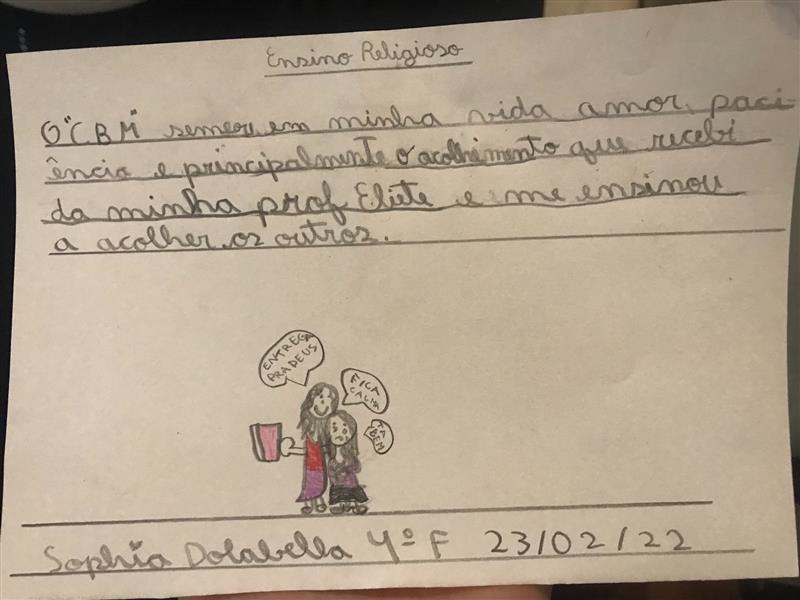 Ensino Religioso
O "CBM" semeou em minha vida amor, paci-
ência e principalmente o acolhimento que recebi
da minha prof Eliete e me ensinou
a acolher os outros.
ENTREGA
PRA DEUS
FICA
CALMA
TA
BEM
Sophia Dolabella 4º F 23/02/22